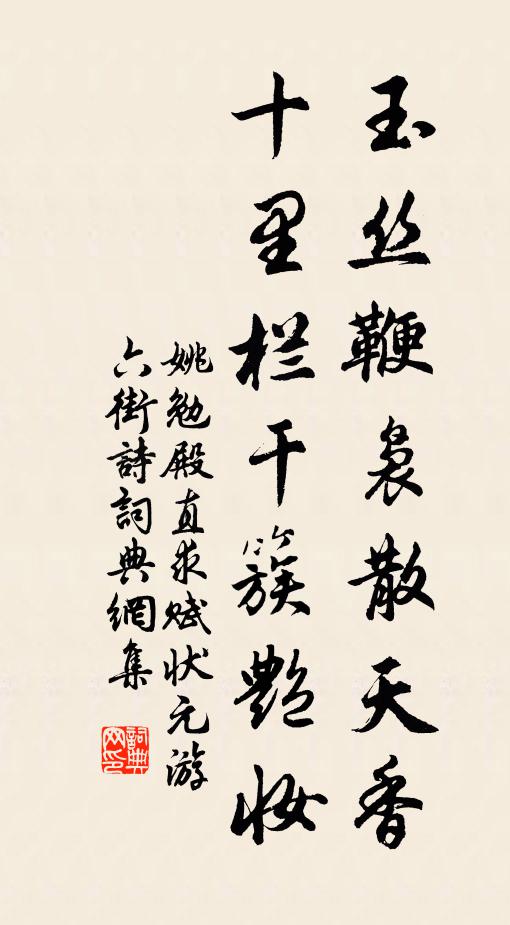 玉丝鞭袅散天香
十里栏干簇艳妆
姚勉殿直求赋状元游
六街詩詞典網集
詞典
网印